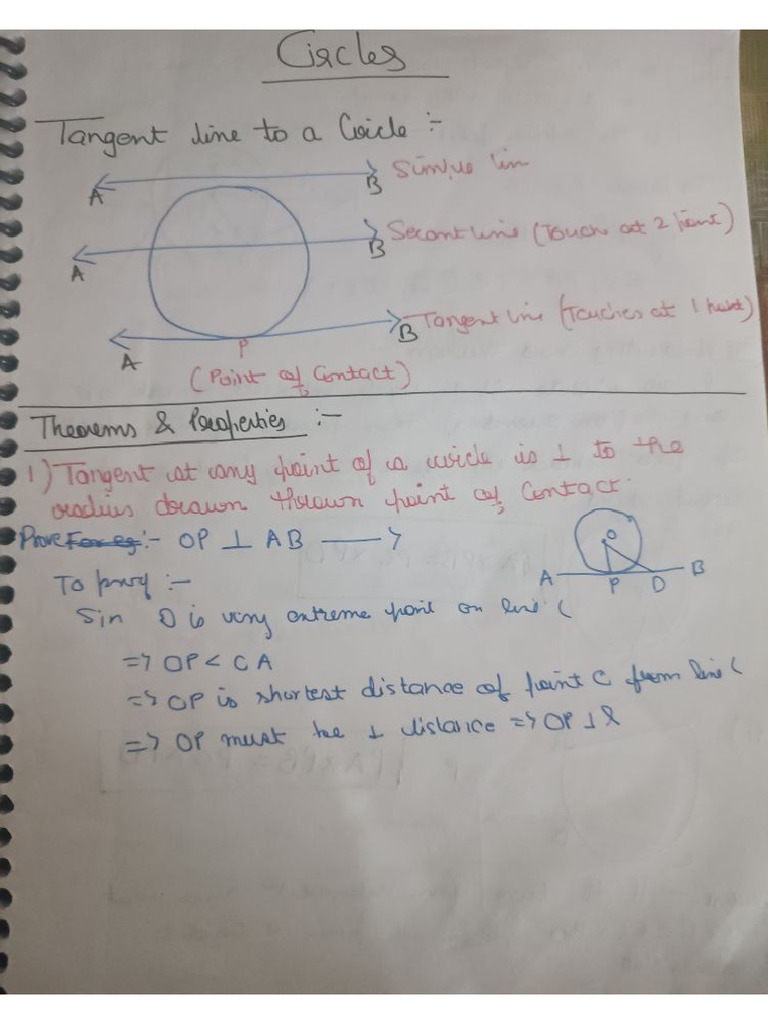 Circles
Tangent line to a Circle :-
A B Simple lin
A B Secant line (Touch at 2 Point)
A B Tangent line (Touches at 1 point)
P
(Point of Contact)
Theorems & Properties :-
1) Tangent at any point of a circle is ⊥ to the
radius drawn thrown point of Contact.
Prove For eg :- OP ⊥ AB →
O
A P D B
To :-
Sin D is very extreme point on line (
=> OP < CA
=> OP is shortest distance of point C from line (
=> OP must be ⊥ distance => OP ⊥ l